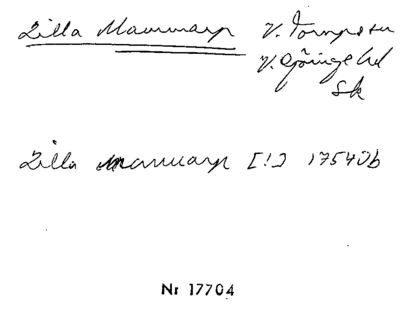 Lilla Mammarp V. Torups sn
V. Göinge hd
Sk
Lilla Mammarp [!] 1754 Jb
Nr 17704